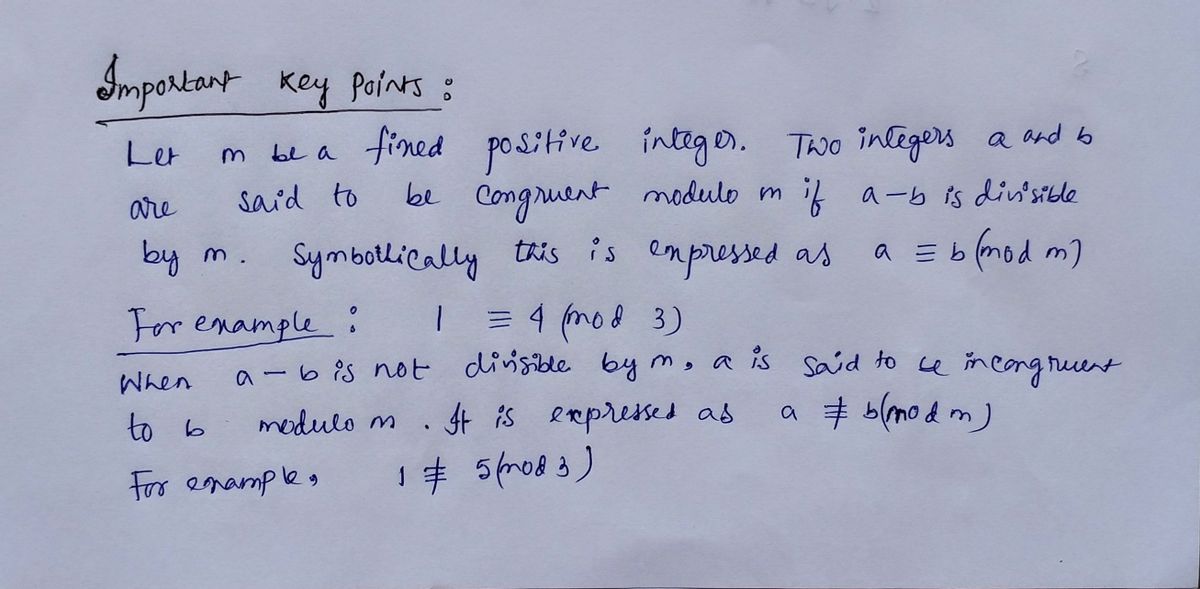 Important Key Points :
Let m be a fixed positive integer. Two integers a and b
are said to be Congruent modulo m if a-b is divisible
by m. Symbotlically this is expressed as a ≡ b (mod m)
For example : 1 ≡ 4 (mod 3)
When a-b is not divisible by m, a is said to be incongruent
to b modulo m. It is expressed as a ≢ b(mod m)
For example, 1 ≢ 5(mod 3)